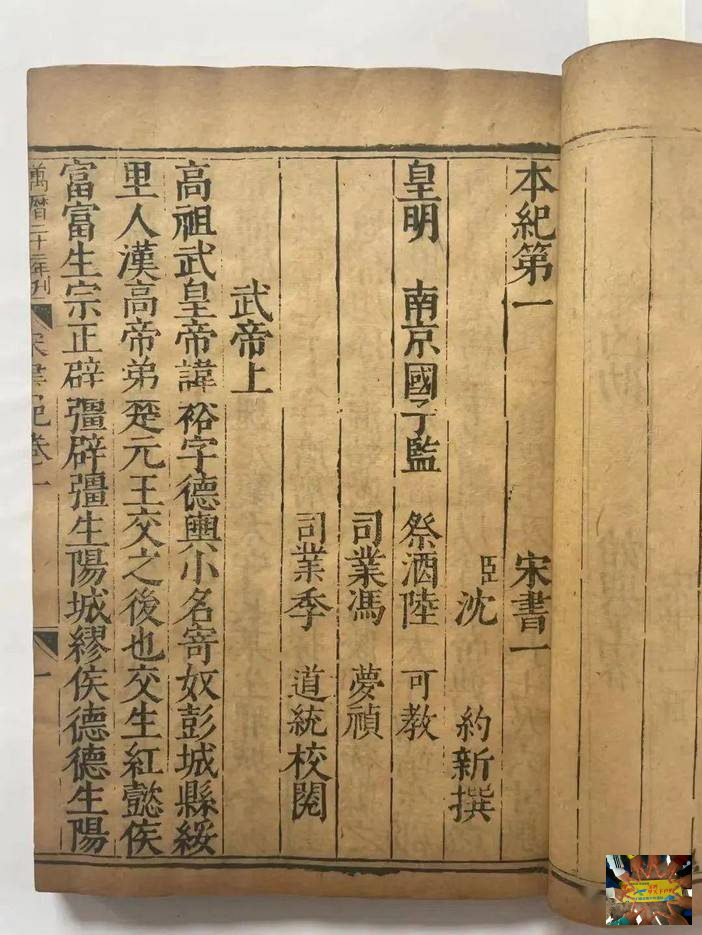 本紀第一 宋書一
臣沈 約新撰
皇明 南京國子監 祭酒陸 可教
司業馮 夢禎
司業季 道統校閱
武帝上
高祖武皇帝諱裕字德輿小名寄奴彭城縣綏
里人漢高帝弟楚元王交之後也交生紅懿侯
富富生宗正辟彊辟彊生陽城繆侯德德生陽
萬曆二十二年刊 宋書紀卷一 一